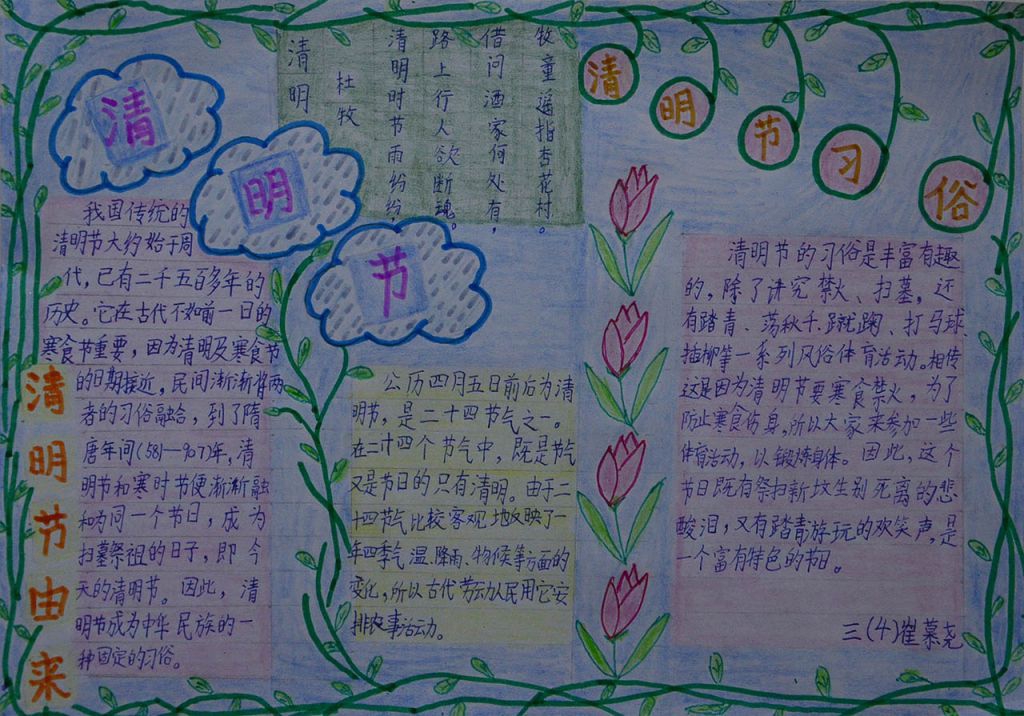 清
明
节
清明
杜牧
清明时节雨纷纷,
路上行人欲断魂。
借问酒家何处有,
牧童遥指杏花村。
清明节习俗
清明节由来
我国传统的
清明节大约始于周
代,已有二千五百多年的
历史。它在古代不如前一日的
寒食节重要,因为清明及寒食节
的日期接近,民间渐渐将两
者的习俗融合,到了隋
唐年间(581—907)年,清
明节和寒时节便渐渐融
和为同一个节日,成为
扫墓祭祖的日子,即今
天的清明节。因此,清
明节成为中华民族的一
种固定的习俗。
公历四月五日前后为清
明节,是二十四节气之一。
在二十四个节气中,既是节气
又是节日的只有清明。由于二
十四节气比较客观地反映了一
年四季气温、降雨、物候等方面的
变化,所以古代劳动人民用它安
排农事活动。
清明节的习俗是丰富有趣
的,除了讲究禁火、扫墓,还
有踏青、荡秋千、蹴鞠、打马球、
插柳等一系列风俗体育活动。相传
这是因为清明节要寒食禁火,为了
防止寒食伤身,所以大家来参加一些
体育活动,以锻炼身体。因此,这个
节日既有祭扫新坟生别死离的悲
酸泪,又有踏青游玩的欢笑声,是
一个富有特色的节日。
三(4)崔慕尧